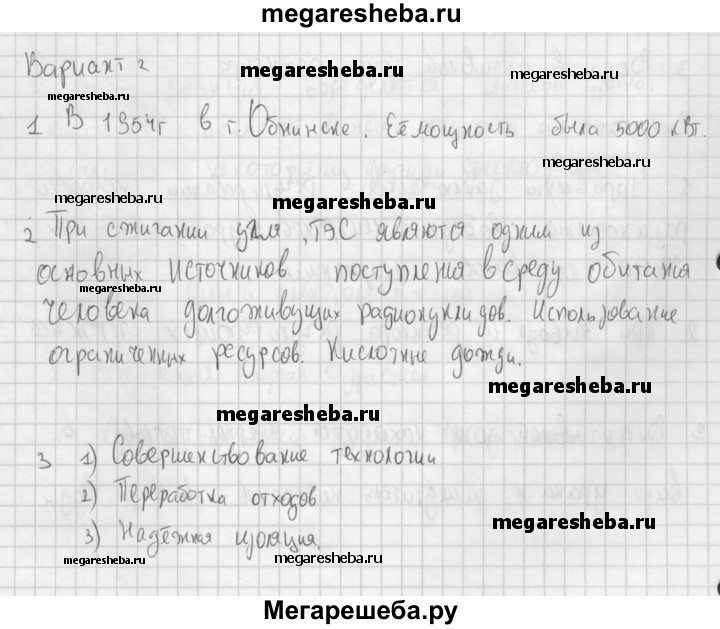 megaresheba.ru
Вариант 2
megaresheba.ru
megaresheba.ru
megaresheba.ru
1 В 1954г в г. Обнинске. Её мощность была 5000 кВт.
megaresheba.ru
megaresheba.ru
megaresheba.ru
2 При сжигании угля, ТЭС являются одним из
основных источников поступления в среду обитания
megaresheba.ru
человека долгоживущих радионуклидов. Использование
ограниченных ресурсов. Кислотные дожди.
megaresheba.ru
megaresheba.ru
3 1) Совершенствование технологии
2) Переработка отходов
megaresheba.ru
3) Надёжная изоляция.
megaresheba.ru
megaresheba.ru
Мегарешеба.ру